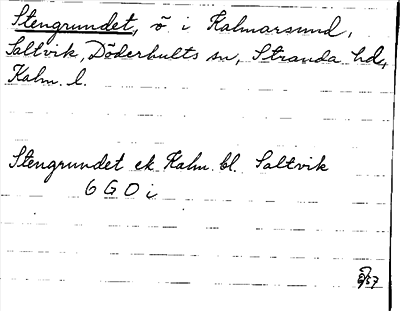 Stengrundet, ö i Kalmarsund,
Saltvik, Döderhults sn, Stranda hd,
Kalm. l.
Stengrundet ek Kalm. bl. Saltvik
6 G 0 i